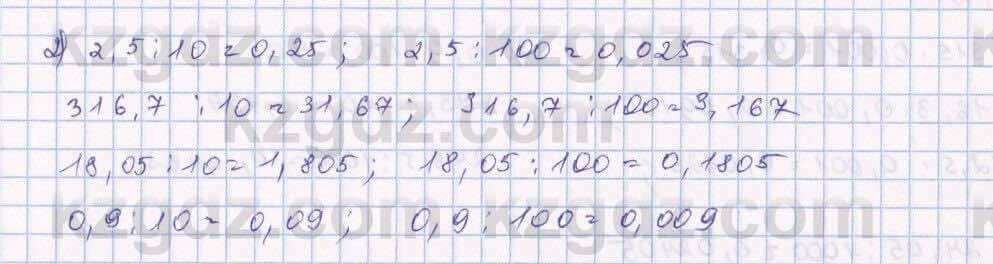 2) 2,5 : 10 = 0,25 ; 2,5 : 100 = 0,025
316,7 : 10 = 31,67 ; 316,7 : 100 = 3,167
18,05 : 10 = 1,805 ; 18,05 : 100 = 0,1805
0,9 : 10 = 0,09 ; 0,9 : 100 = 0,009
kzgdz.com